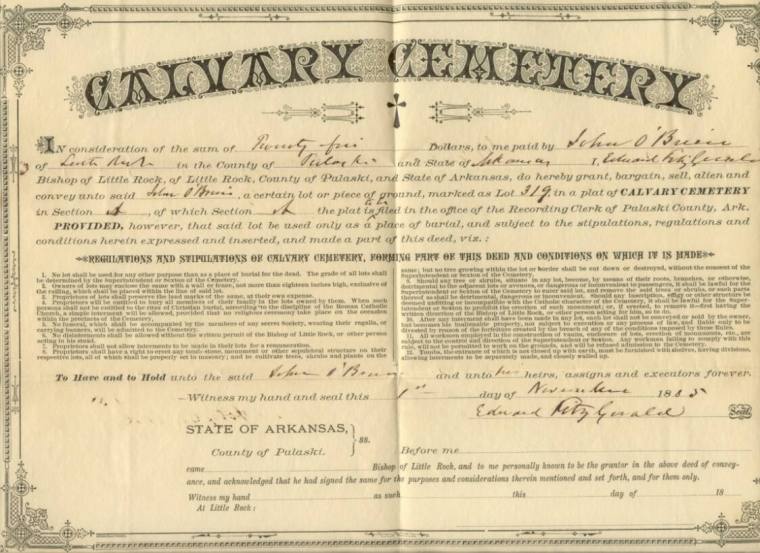 CALVARY CEMETERY
IN consideration of the sum of Twenty five Dollars, to me paid by John O'Brien
of Little Rock in the County of Pulaski and State of Arkansas I, Edward FitzGerald
Bishop of Little Rock, of Little Rock, County of Pulaski, and State of Arkansas, do hereby grant, bargain, sell, alien and
convey unto said John O'Brien, a certain lot or piece of ground, marked as Lot 319 in a plat of CALVARY CEMETERY
in Section A, of which Section A the plat is to be filed in the office of the Recording Clerk of Pulaski County, Ark.
PROVIDED, however, that said lot be used only as a place of burial, and subject to the stipulations, regulations and
conditions herein expressed and inserted, and made a part of this deed, viz.:
REGULATIONS AND STIPULATIONS OF CALVARY CEMETERY, FORMING PART OF THIS DEED AND CONDITIONS ON WHICH IT IS MADE
1. No lot shall be used for any other purpose than as a place of burial for the dead. The grade of all lots shall
be determined by the Superintendent or Sexton of the Cemetery.
2. Owners of lots may enclose the same with a wall or fence, not more than eighteen inches high, exclusive of
the railing, which shall be placed within the line of said lot.
3. Proprietors of lots shall preserve the land marks of the same, at their own expense.
4. Proprietors will be entitled to bury all members of their family in the lots owned by them. When such
persons shall not be entitled to the rites of Christian burial, according to the discipline of the Roman Catholic
Church, a simple interment will be allowed, provided that no religious ceremony take place on the occasion
within the precincts of the Cemetery.
5. No funeral, which shall be accompanied by the members of any secret Society, wearing their regalia, or
carrying banners, will be admitted to the Cemetery.
6. No disinterments shall be allowed without the written permit of the Bishop of Little Rock, or other person
acting in his stead.
7. Proprietors shall not allow interments to be made in their lots for a remuneration.
8. Proprietors shall have a right to erect any tomb-stone, monument or other sepulchral structure on their
respective lots, all of which shall be properly set in masonry; and to cultivate trees, shrubs and plants on the
same; but no tree growing within the lot or border shall be cut down or destroyed, without the consent of the
Superintendent or Sexton of the Cemetery.
9. Should any tree or shrubs, situate in any lot, become, by means of their roots, branches, or otherwise,
detrimental to the adjacent lots or avenues, or dangerous or inconvenient to passengers, it shall be lawful for the
Superintendent or Sexton of the Cemetery to enter said lot, and remove the said trees or shrubs, or such parts
thereof as shall be detrimental, dangerous or inconvenient. Should any inscription, effigy or other structure be
deemed unfitting or incompatible with the Catholic character of the Cemetery, it shall be lawful for the Super-
intendent or Sexton to forbid the erection of such monument; or, if erected, to remove it—first having the
written direction of the Bishop of Little Rock, or other person acting for him, so to do.
10. After any interment shall have been made in any lot, such lot shall not be conveyed or sold by the owner,
but becomes his inalienable property, not subject to execution or any process of law, and liable only to be
divested by reason of the forfeiture created by the breach of any of the conditions imposed by these Rules.
11. All workmen employed in the construction of vaults, enclosure of lots, erection of monuments, etc., are
subject to the control and direction of the Superintendent or Sexton. Any workman failing to comply with this
rule, will not be permitted to work on the grounds, and will be refused admission to the Cemetery.
12. Tombs, the entrance of which is not closed up with earth, must be furnished with shelves, having divisions,
allowing interments to be separately made, and closely walled up.
To Have and to Hold unto the said John O'Brien and unto his heirs, assigns and executors forever.
Witness my hand and seal this 1st day of November 1885
Edward FitzGerald Seal
STATE OF ARKANSAS,
County of Pulaski. } ss. Before me
came Bishop of Little Rock, and to me personally known to be the grantor in the above deed of convey-
ance, and acknowledged that he had signed the same for the purposes and considerations therein mentioned and set forth, and for them only.
Witness my hand as such this day of 18
At Little Rock: